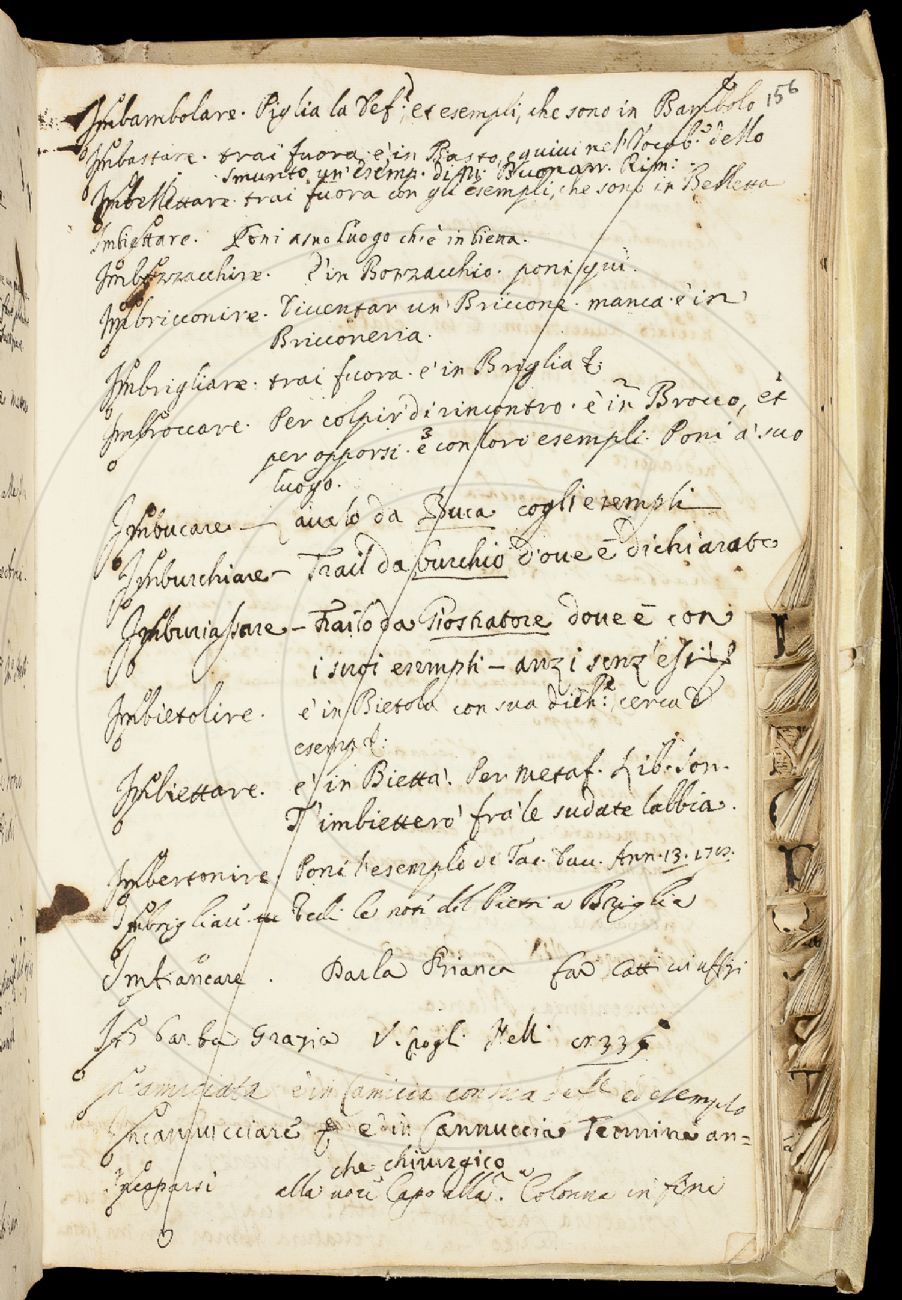 156
Imbambolare. Piglia la Def.e, et esempli, che sono in Bambolo
Imbastare. trai fuora. è in Basto, e quivi nel Vocab.o dello
smunto un esemp. di M. Buonarr. Rim:
Imbellettare. trai fuora con gli esempli, che sono in Belletta
Imbiettare. Poni a suo luogo ch'è in bietta.
Imbozzacchire. È in Bozzacchio. poni qui.
Imbricconire. Diventar un Briccone. manca. è in
Bricconeria.
Imbrigliare. trai fuora. e' in Briglia
Imbroccare. Per colpir di rincontro. è in Brocco, et
per opporsi. è con loro esempli. Poni a' suo
luogo.
Imbucare — cavalo da Buca cogli esempli
Imburchiare — Trail da Burchio dove è dichiarato
Imburiassare — Trailo da Giostratore dove è con
i suoi esempli — anzi senz'essi
Imbietolire. è in Bietola con sua dich.e, cerca
esemp.
Imbiettare. e' in Bietta. Per metaf. Lib. Son.
T'imbietterò fra le sudate labbia.
Imbertonire Poni l'esemplo di Tac. Dav. Ann. 13.
Vedi le a Briglia
Imbiancare. Dar la Bianca far
Barba Grazia V. fogli 335
è in Camicia con sua ed esemplo
Incannucciare è in Cannuccia Termine an=
che chirurgico
alla voce Capo alla Colonna in fine